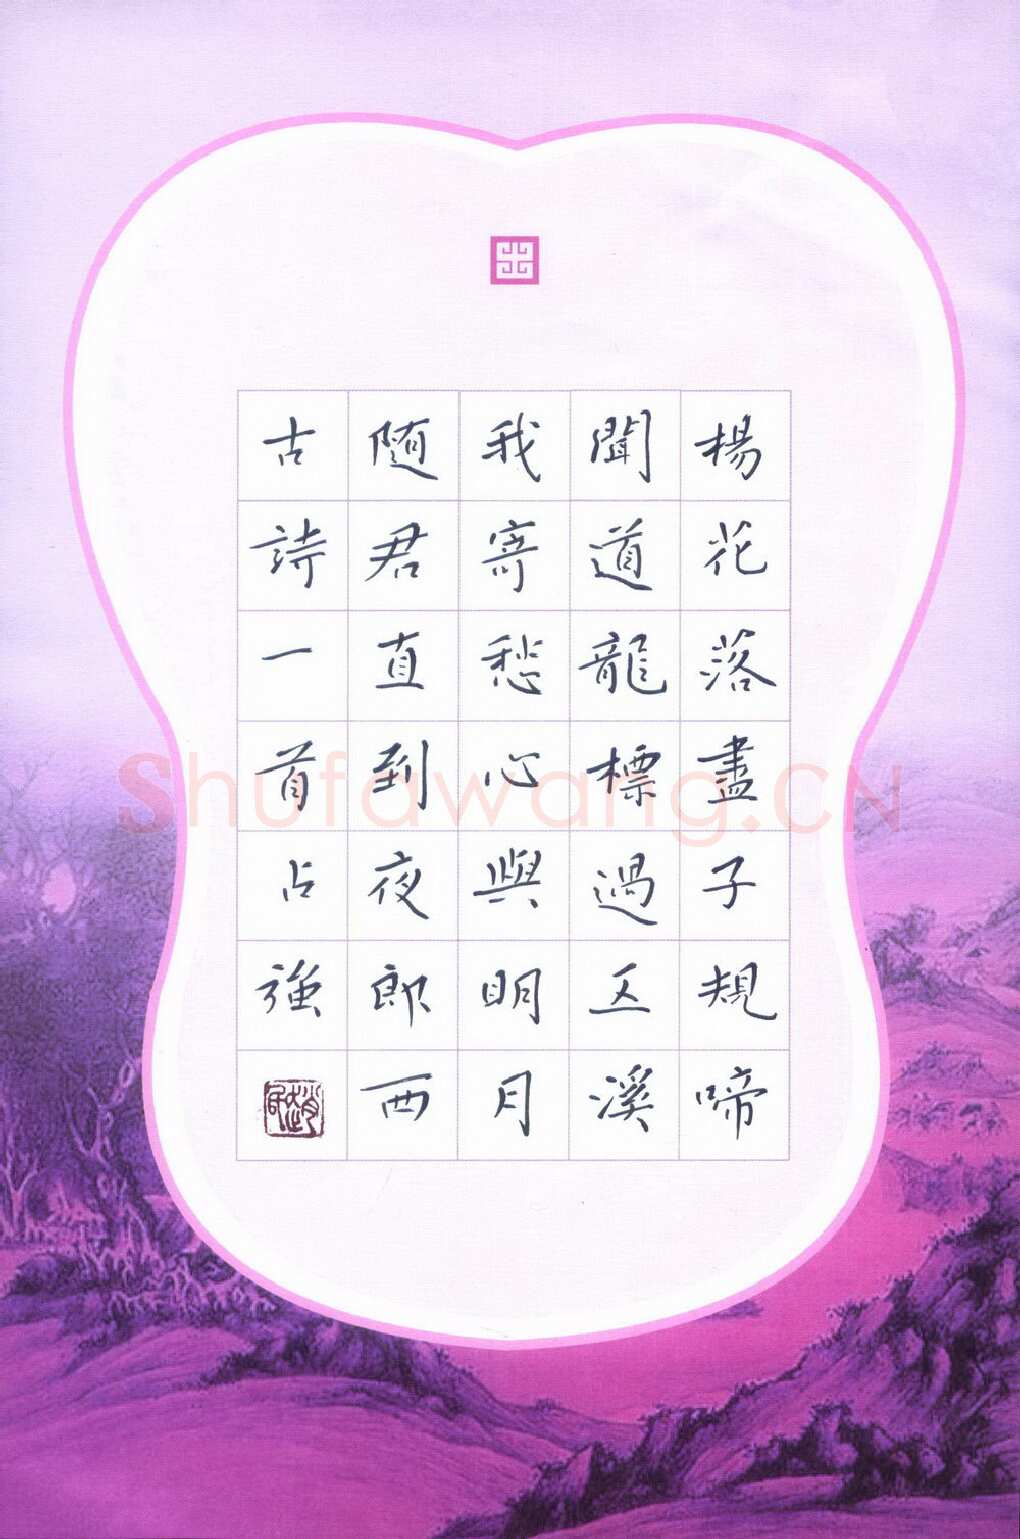 楊花落盡子規啼
聞道龍標過五溪
我寄愁心與明月
隨君直到夜郎西
古詩一首占強
Shufawang.CN